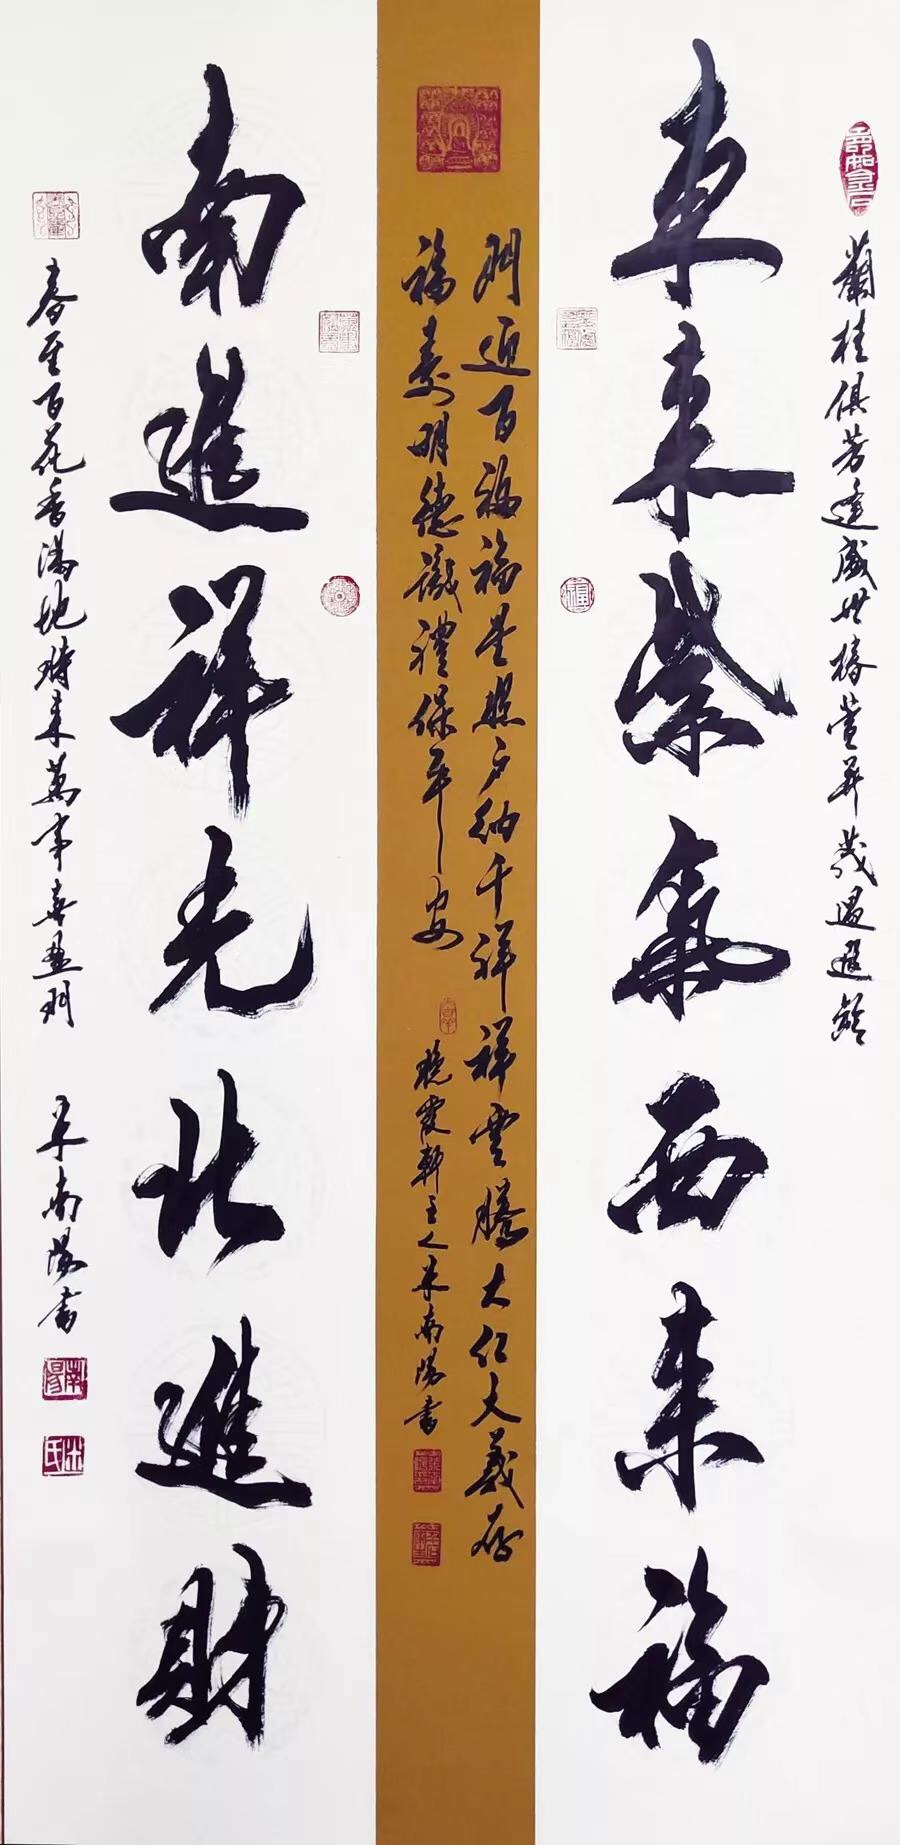 蘭桂俱芳逢盛世椿萱并茂過遐齡
東來紫氣西來福
門迎百福福星照戶納千祥祥雲騰大仁大義存
福壽明德識禮保平安
晚霞軒主人米南陽書
南進祥光北進財
春至百花香滿地時來萬事喜盈門
米南陽書
南陽
米氏